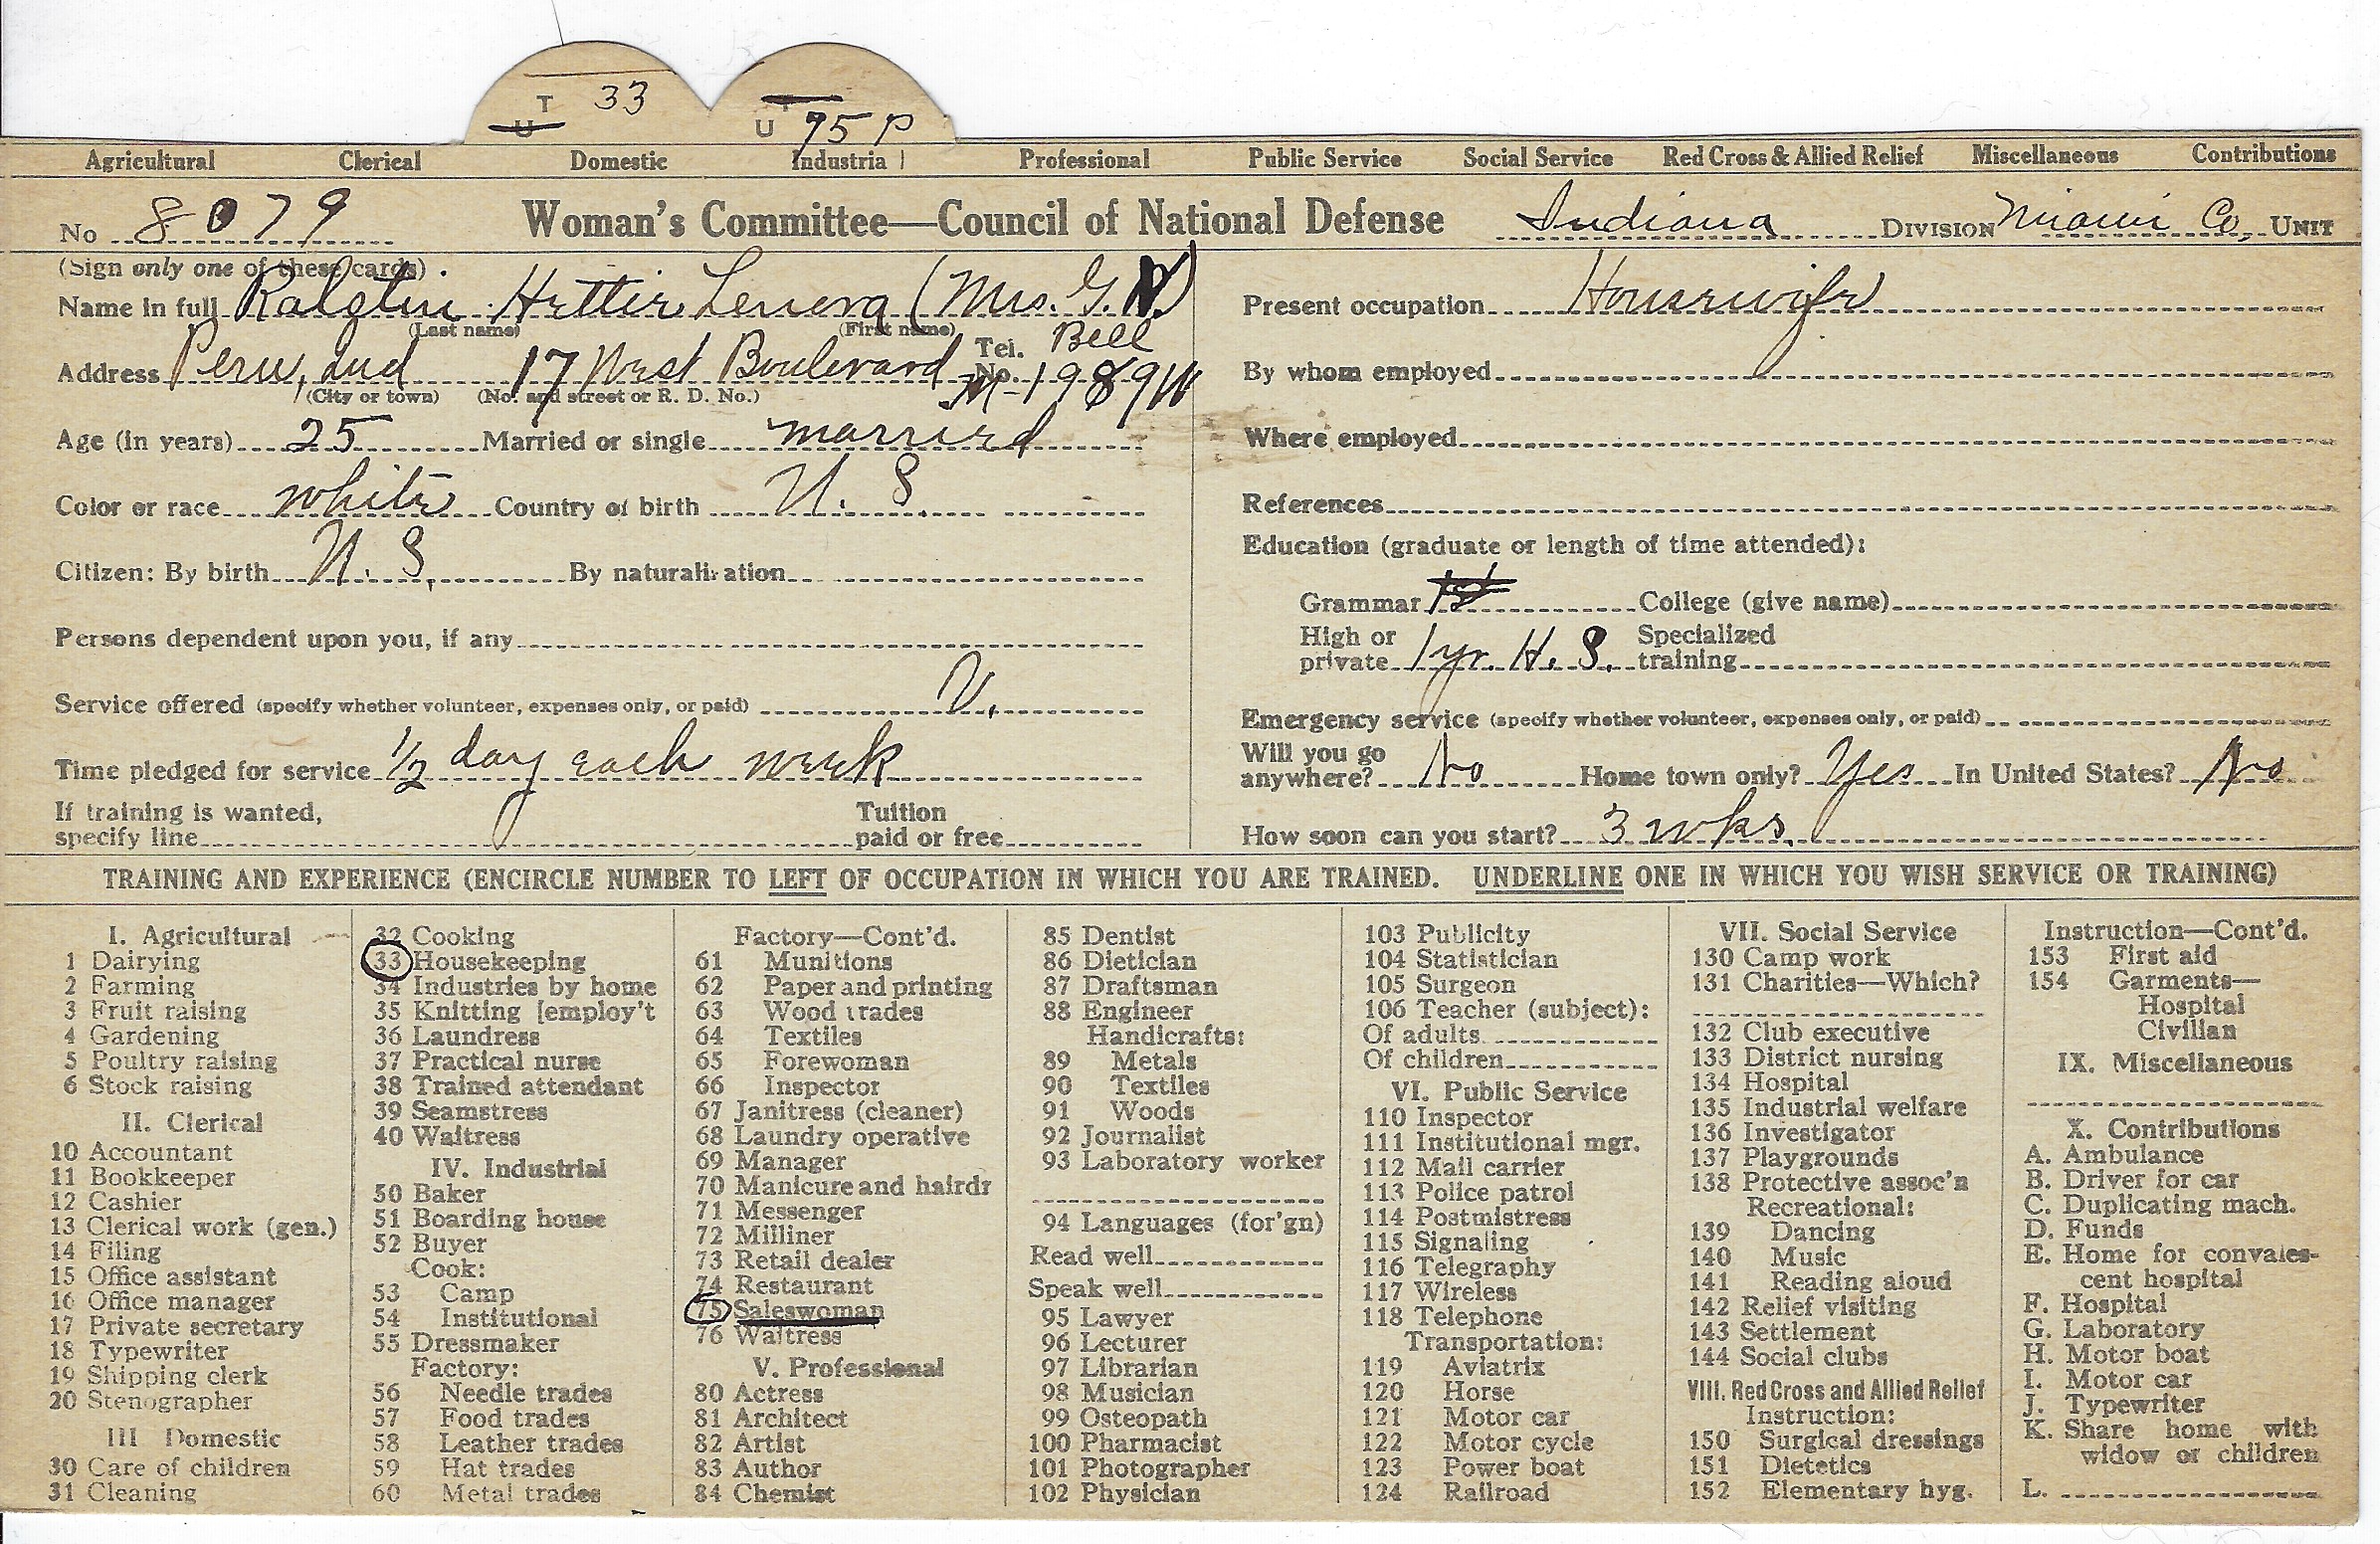 T 33
U
T
U 75 P
Agricultural Clerical Domestic Industrial Professional Public Service Social Service Red Cross & Allied Relief Miscellaneous Contributions
No 8079 Woman's Committee—Council of National Defense Indiana DIVISION Miami Co. UNIT
(Sign only one of these cards)
Name in full Ralston Hettie Lenora (Mrs. G. N.)
(Last name) (First name)
Address Peru, Ind 17 West Boulevard Tel. No. Bell M-1989W
(City or town) (No. and street or R. D. No.)
Age (in years) 25 Married or single married
Color or race white Country of birth U. S.
Citizen: By birth U. S. By naturalization
Persons dependent upon you, if any
Service offered (specify whether volunteer, expenses only, or paid) V.
Time pledged for service 1/2 day each week
If training is wanted, specify line Tuition paid or free
Present occupation Housewife
By whom employed
Where employed
References
Education (graduate or length of time attended):
Grammar College (give name)
High or private 1 yr. H. S. Specialized training
Emergency service (specify whether volunteer, expenses only, or paid)
Will you go anywhere? No Home town only? Yes In United States? No
How soon can you start? 3 wks.
TRAINING AND EXPERIENCE (ENCIRCLE NUMBER TO LEFT OF OCCUPATION IN WHICH YOU ARE TRAINED. UNDERLINE ONE IN WHICH YOU WISH SERVICE OR TRAINING)
I. Agricultural
1 Dairying
2 Farming
3 Fruit raising
4 Gardening
5 Poultry raising
6 Stock raising
II. Clerical
10 Accountant
11 Bookkeeper
12 Cashier
13 Clerical work (gen.)
14 Filing
15 Office assistant
16 Office manager
17 Private secretary
18 Typewriter
19 Shipping clerk
20 Stenographer
III Domestic
30 Care of children
31 Cleaning
32 Cooking
33 Housekeeping
34 Industries by home
35 Knitting [employ't
36 Laundress
37 Practical nurse
38 Trained attendant
39 Seamstress
40 Waitress
IV. Industrial
50 Baker
51 Boarding house
52 Buyer
Cook:
53 Camp
54 Institutional
55 Dressmaker
Factory:
56 Needle trades
57 Food trades
58 Leather trades
59 Hat trades
60 Metal trades
Factory—Cont'd.
61 Munitions
62 Paper and printing
63 Wood trades
64 Textiles
65 Forewoman
66 Inspector
67 Janitress (cleaner)
68 Laundry operative
69 Manager
70 Manicure and hairdr
71 Messenger
72 Milliner
73 Retail dealer
74 Restaurant
75 Saleswoman
76 Waitress
V. Professional
80 Actress
81 Architect
82 Artist
83 Author
84 Chemist
85 Dentist
86 Dietician
87 Draftsman
88 Engineer
Handicrafts:
89 Metals
90 Textiles
91 Woods
92 Journalist
93 Laboratory worker
94 Languages (for'gn)
Read well
Speak well
95 Lawyer
96 Lecturer
97 Librarian
98 Musician
99 Osteopath
100 Pharmacist
101 Photographer
102 Physician
103 Publicity
104 Statistician
105 Surgeon
106 Teacher (subject):
Of adults
Of children
VI. Public Service
110 Inspector
111 Institutional mgr.
112 Mail carrier
113 Police patrol
114 Postmistress
115 Signaling
116 Telegraphy
117 Wireless
118 Telephone
Transportation:
119 Aviatrix
120 Horse
121 Motor car
122 Motor cycle
123 Power boat
124 Railroad
VII. Social Service
130 Camp work
131 Charities—Which?
132 Club executive
133 District nursing
134 Hospital
135 Industrial welfare
136 Investigator
137 Playgrounds
138 Protective assoc'n
Recreational:
139 Dancing
140 Music
141 Reading aloud
142 Relief visiting
143 Settlement
144 Social clubs
VIII. Red Cross and Allied Relief
Instruction:
150 Surgical dressings
151 Dietetics
152 Elementary hyg.
Instruction—Cont'd.
153 First aid
154 Garments—
Hospital
Civilian
IX. Miscellaneous
X. Contributions
A. Ambulance
B. Driver for car
C. Duplicating mach.
D. Funds
E. Home for convales-
cent hospital
F. Hospital
G. Laboratory
H. Motor boat
I. Motor car
J. Typewriter
K. Share home with
widow or children
L.